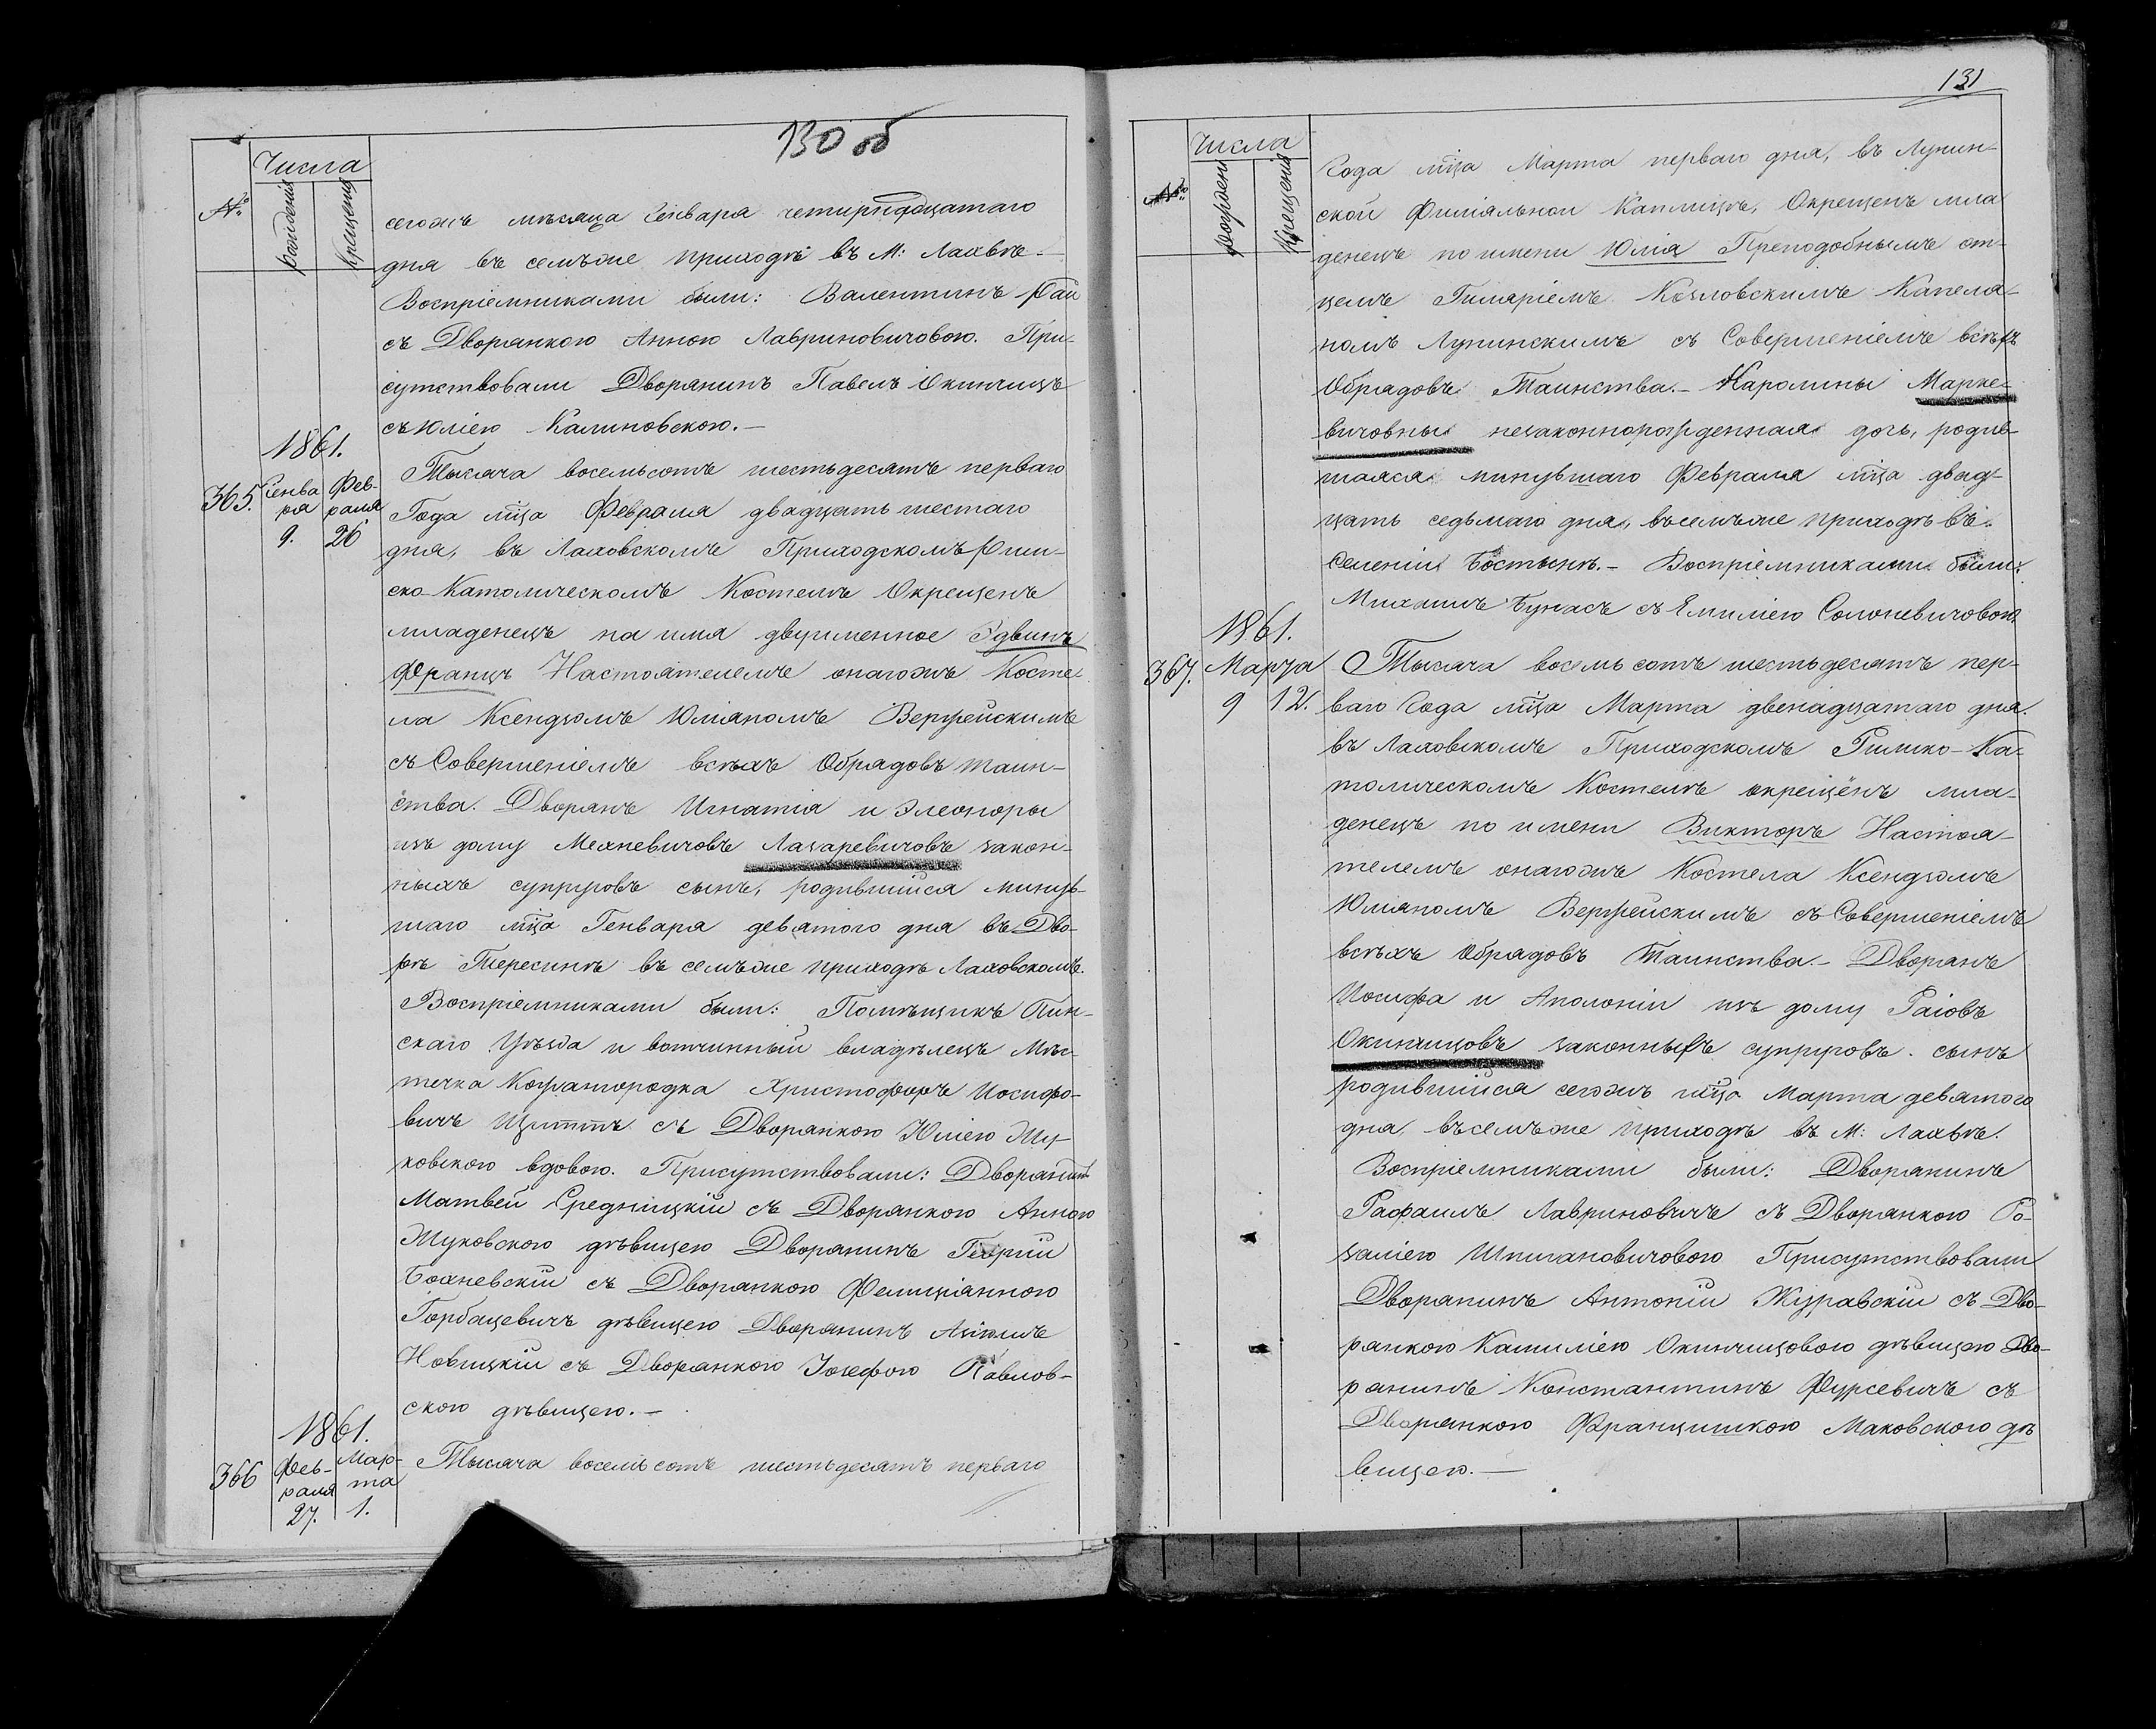 130 об
Числа
№
рожденія
крещенія
сегожъ мѣсяца Генваря четырнадцатаго
дня въ семъже приходѣ въ М: Лахвѣ.
Воспріемниками были: Валентинъ Рай
съ Дворянкою Анною Лавриновичовою. При-
сутствовали Дворянинъ Павелъ Окинчицъ
съ Юліею Калиновскою.—
1861.
365. Генва
ря
9.
Фев-
раля
26
Тысяча восемьсотъ шестьдесятъ перваго
Года мца Февраля двадцать шестаго
дня, въ Лаховскомъ Приходскомъ Рим-
ско-Католическомъ Костелѣ Окрещенъ
младенецъ на имя двуименное Эдвинъ
Францъ Настоятелемъ онагожъ Косте-
ла Ксендзомъ Юліяномъ Вержейскимъ
съ Совершеніемъ всѣхъ Обрядовъ таин-
ства. Дворянъ Игнатія и Элеоноры
изъ дому Мехневичовъ Лазаревичовъ закон-
ныхъ супруговъ сынъ, родившійся минув-
шаго мца Генваря девятого дня въ Дво-
рѣ Тересинѣ въ семъже приходѣ Лаховскомъ.
Воспріемниками были: Помѣщикъ Пин-
скаго Уѣзда и вотчинный владѣлецъ Мѣс-
течка Кожангородка Христофоръ Иосифо-
вичъ Щиттъ съ Дворянкою Юліею Жу-
ковскою вдовою. Присутствовали: Дворянинъ
Матвей Средницкій съ Дворянкою Анною
Жуковскою дѣвицею Дворянинъ Георгій
Бохневскій съ Дворянкою Фелиціанною
Горбацевичъ дѣвицею Дворянинъ
Новицкій съ Дворянкою Іозефою Павлов-
скою дѣвицею.—
1861.
366 Фев-
раля
27.
Мар-
та
1.
Тысяча восемьсотъ шестьдесятъ перваго
131
Числа
№
рожден
Крещенія
Года мца Марта перваго дня, въ Лунин-
ской Филіяльной Каплицѣ, Окрещенъ мла
денецъ по имени Юлія Преподобнымъ от-
цемъ Гиляріемъ Козловскимъ Капеля-
номъ Лунинскимъ съ Совершеніемъ всѣхъ
Обрядовъ Таинства.— Каролины Марке-
вичовны незаконнорожденная дочь, родив-
шаяся минувшаго Февраля мца двад-
цать седьмаго дня, въ семъже приходѣ въ
Селеніи Бостынѣ.— Воспріемниками были:
Михаилъ Бунасъ съ Емиліею Солоневичовою.
1861.
367. Марта
9 12.
Тысяча восемь сотъ шестьдесятъ пер-
ваго Года мца Марта двенадцатаго дня.
въ Лаховскомъ Приходскомъ Римско-Ка-
толическомъ Костелѣ окрещёнъ мла-
денецъ по имени Викторъ Настоя-
телемъ онагожъ Костела Ксендзомъ
Юліяномъ Вержейскимъ съ Совершеніемъ
всѣхъ Обрядовъ Таинства.— Дворянъ
Иосифа и Аполоніи изъ дому Раіовъ
Окинчицовъ законныхъ супруговъ. сынъ
родившійся сегожъ мца Марта девятого
дня, въ семъже приходѣ въ М: Лахвѣ.
Воспріемниками были: Дворянинъ
Рафаилъ Лавриновичъ съ Дворянкою Ро-
заліею Присутствовали
Дворянинъ Антоній Журавскій съ Дво-
рянкою Камиліею Окинчицовою дѣвицею Дво-
рянинъ Константинъ Фурсевичъ съ
Дворянкою Францишкою Маковскою дѣ
вицею.—